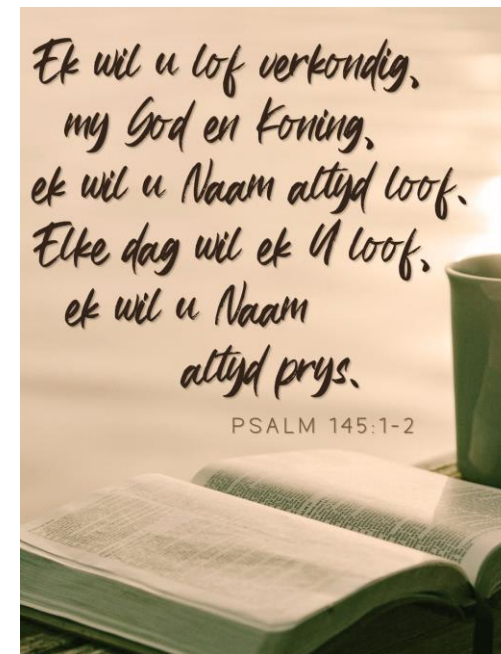 Ek wil u lof verkondig,
my God en Koning,
ek wil u Naam altyd loof.
Elke dag wil ek U loof,
ek wil u Naam
altyd prys.
PSALM 145:1-2